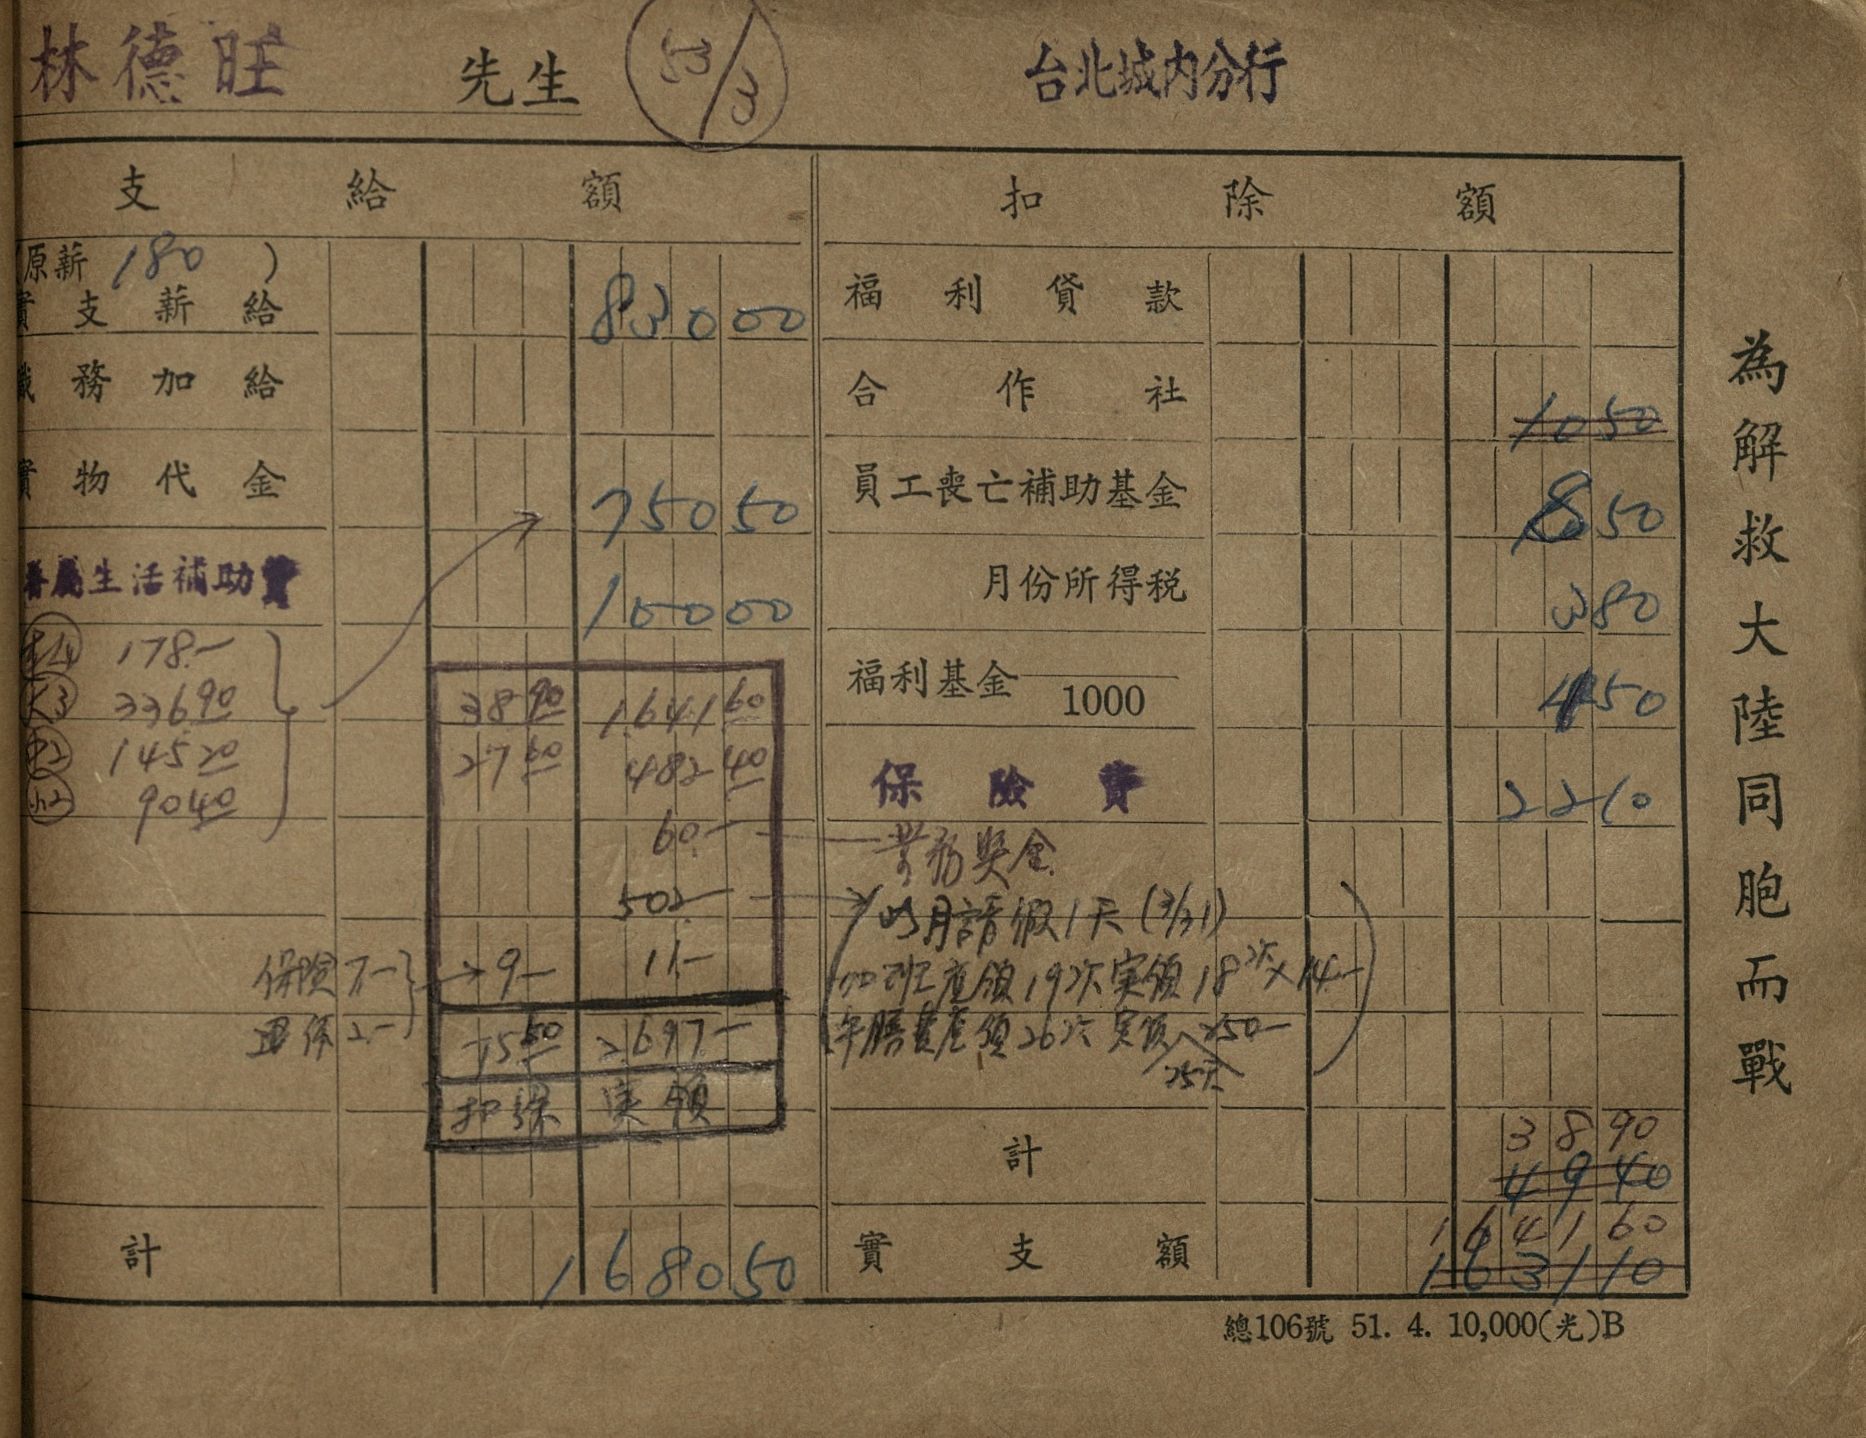 林德旺 先生 53/3 台北城內分行
支給額 扣除額
原薪 180 )
實支薪給 830 00 福利貸款
職務加給 合作社 10 50
實物代金 750 50 員工喪亡補助基金 8 50
眷屬生活補助費 100 00 月份所得稅 3 80
178.- 福利基金 1000 4 50
336 90 38 90 1,641 60
145 20 27 60 482 40 保險費 22 10
90 40
60.- 業務獎金
502.- 此月請假1天 (3/31)
保險 7.- 9.- 11.- 加班應領19次実領18次×14.-
退休 2.- 75 50 2697.- 午膳費應領26次 実領 250.-
25次
扣除 実領
計 38 90
49 40
計 1680 50 實支額 1641 60
1631 10
總106號 51. 4. 10,000(光)B
為解救大陸同胞而戰